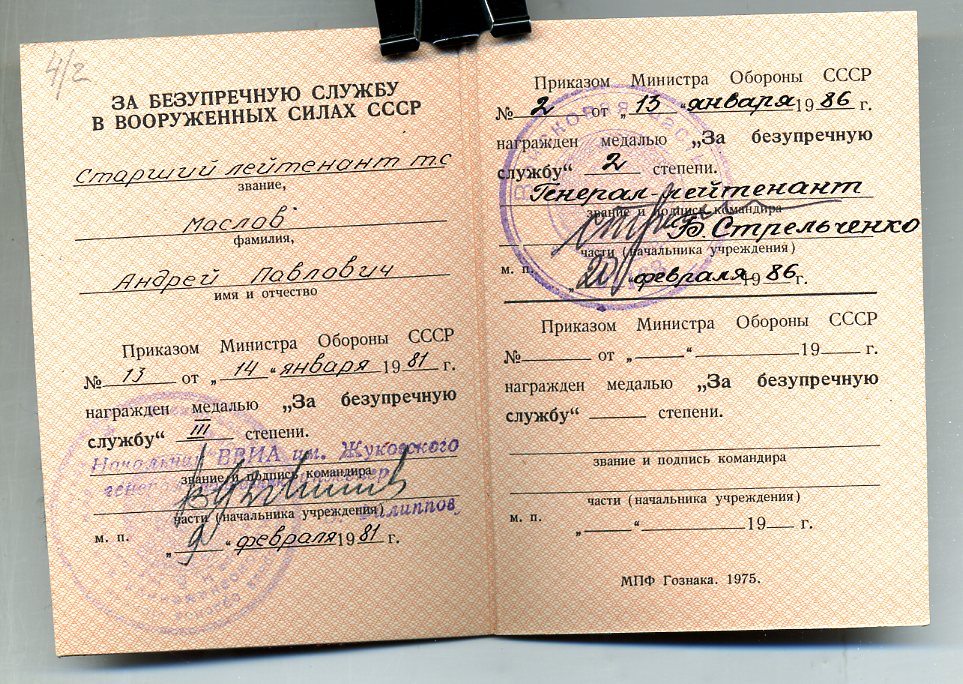 4/2
ЗА БЕЗУПРЕЧНУЮ СЛУЖБУ
В ВООРУЖЕННЫХ СИЛАХ СССР
Старший лейтенант тс
звание,
Маслов
фамилия,
Андрей Павлович
имя и отчество
Приказом Министра Обороны СССР
№ 13 от „14“ января 1981 г.
награжден медалью „За безупречную
службу“ III степени.
Начальник ВВИА им. Жуковского
звание и подпись командира
части (начальника учреждения)
Филиппов
м. п.
„9“ февраля 1981 г.
Приказом Министра Обороны СССР
№ 2 от „13“ января 1986 г.
награжден медалью „За безупречную
службу“ 2 степени.
Генерал-лейтенант
звание и подпись командира
Б. Стрельченко
части (начальника учреждения)
м. п.
„20“ февраля 1986 г.
Приказом Министра Обороны СССР
№ от „ “ 19 г.
награжден медалью „За безупречную
службу“ степени.
звание и подпись командира
части (начальника учреждения)
м. п.
„ “ 19 г.
МПФ Гознака. 1975.